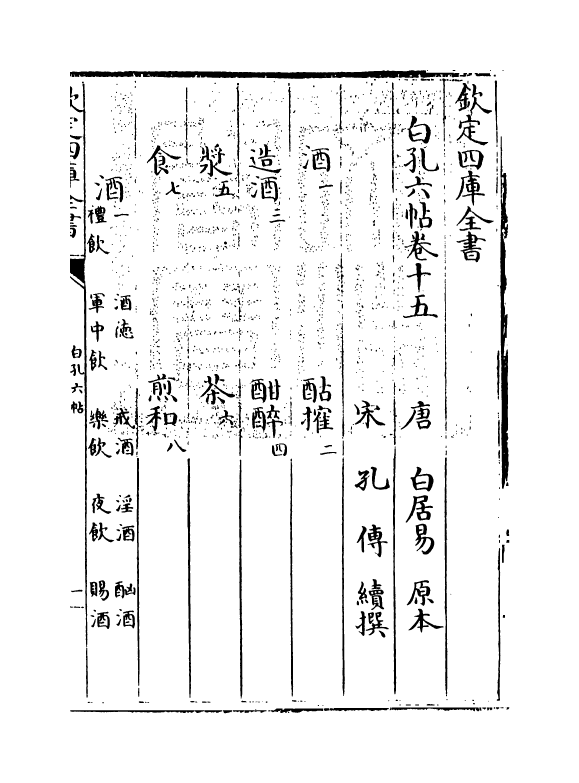 欽定四庫全書
白孔六帖卷十五
唐　白居易　原本
宋　孔　傳　續撰
酒一　酤搉二
造酒三　酣醉四
漿五　茶六
食七　煎和八
酒一　酒德　戒酒　淫酒　酗酒
禮飲　軍中飲　樂飲　夜飲　賜酒
欽定四庫全書
白孔六帖
一